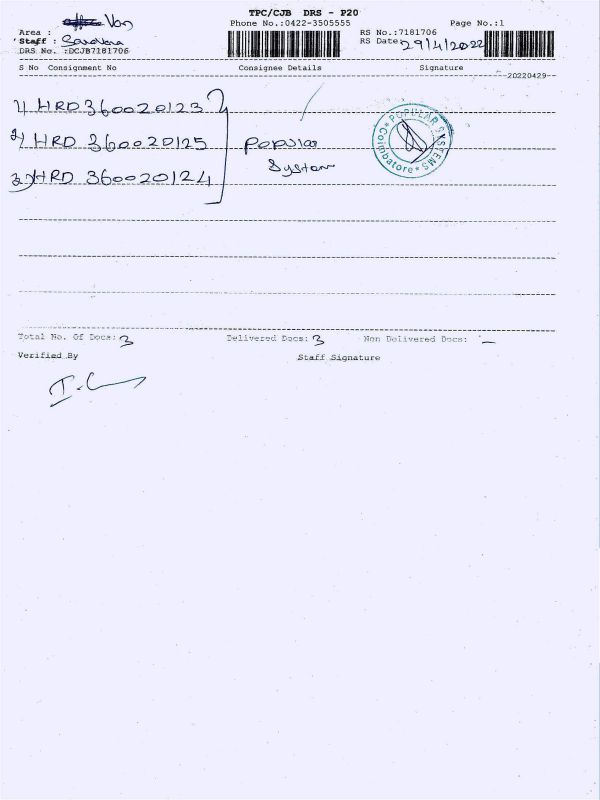 TPC/CJB DRS - P20
Van
Phone No.:0422-3505555
Page No.:1
Area :
RS No.:7181706
Staff :
RS Date: 29/4/2022
DRS No. :DCJB7181706
S No Consignment No Consignee Details Signature
20220429
1) HRD 360020123
2) HRD 360020125
3) HRD 360020124
Popular
System
POPULAR SYSTEMS
* Coimbatore *
Total No. Of Docs: 3 Delivered Docs: 3 Non Delivered Docs: -
Verified By Staff Signature